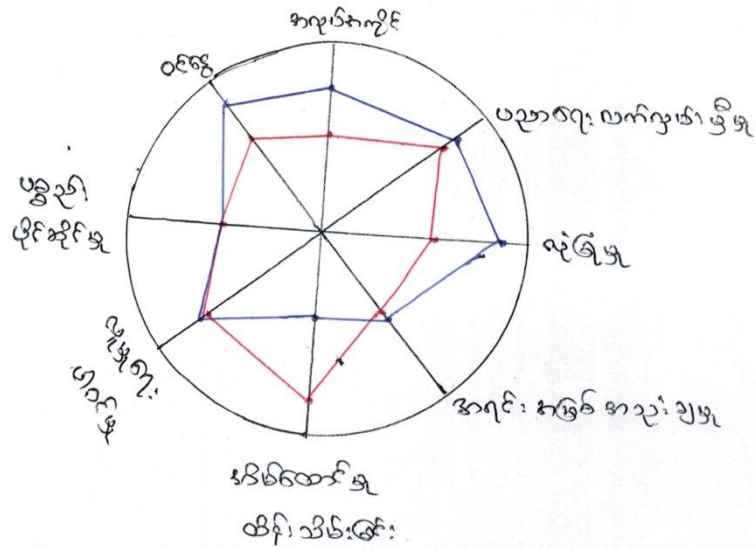 အလုပ်အကိုင်
ပညာရေး လက်လှမ်းမှီမှု
လုံခြုံမှု
အရင်းအမြစ် အသုံးချမှု
အိမ်ထောင်မှု
ထိန်းသိမ်းခြင်း
လူမှုရေး
ပါဝင်မှု
ပစ္စည်း
ပိုင်ဆိုင်မှု
ဝင်ငွေ